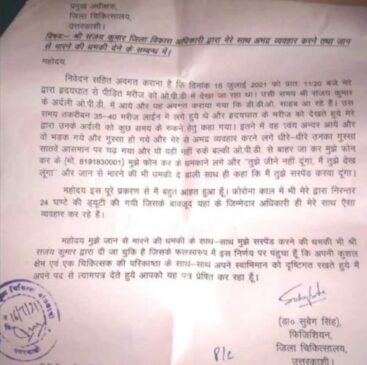 प्रमुख अधीक्षक,
जिला चिकित्सालय,
उत्तरकाशी।
विषयः- श्री संजय कुमार जिला विकास अधिकारी द्वारा मेरे साथ अभद्र व्यवहार करने तथा जान
से मारने की धमकी देने के सम्बन्ध में।
महोदय,
निवेदन सहित अवगत कराना है कि दिनांक 15 जुलाई 2021 को प्रातः 11:20 बजे मेरे
द्वारा हृदयघात से पीड़ित मरीज को ओ.पी.डी. में देखा जा रहा था। उसी समय श्री संजय कुमार
के अर्दली ओ.पी.डी. में आये और यह अवगत कराया गया कि डी.डी.ओ. साहब आ रहे हैं। उस
समय तकरीबन 35–40 मरीज लाईन में लगे हुये थे और हृदयघात के मरीज को देखते हुये मेरे
द्वारा उनके अर्दली को कुछ समय के रुकने हेतु कहा गया। इतने में वह स्वंय अन्दर आये और
वो भड़क गये और गुस्सा हो गये और मेरे से अभद्र व्यवहार करने लगे धीरे-धीरे उनका गुस्सा
सातवें आसमान पर चढ़ गया और वो यही नहीं रुके बल्की ओ.पी.डी. से बाहर जा कर मुझे फोन
कर के (मो. 8191830001) मुझे फोन कर के धमकाने लगे और "तुझे जीने नहीं दूंगा, मैं तुझे देख
लूंगा" और जान से मारने की भी धमकी दे डाली साथ ही कहा कि मैं तुझे सस्पेंड करवा दूंगा।
महोदय इस पूरे प्रकरण से मैं बहुत आहत हुआ हूँ। कोरोना काल में भी मेरे द्वारा निरन्तर
24 घण्टे की ड्यूटी की गयी जिसके बावजूद यहां के जिम्मेदार अधिकारी ही मेरे साथ ऐसा
व्यवहार कर रहे हैं।
महोदय मुझे जान से मारने की धमकी के साथ-साथ मुझे सस्पेंड करने की धमकी भी श्री
संजय कुमार द्वारा दी जा चुकि है जिसके फलस्वरुप में इस निर्णय पर पंहुचा हूँ कि अपनी कुशल
क्षेम एवं एक चिकित्सक की परिकाष्ठा के साथ-साथ अपने स्वाभिमान को दृष्टिगत रखते हुये मैं
अपने पद से त्यागपत्र देते हुये आपको यह पत्र प्रेषित कर रहा हूँ।
(डा० सुबेग सिंह)
फिजिशियन,
जिला चिकित्सालय,
उत्तरकाशी।